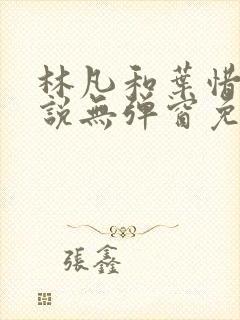 林凡和葉惜
說無彈窗免
張鑫